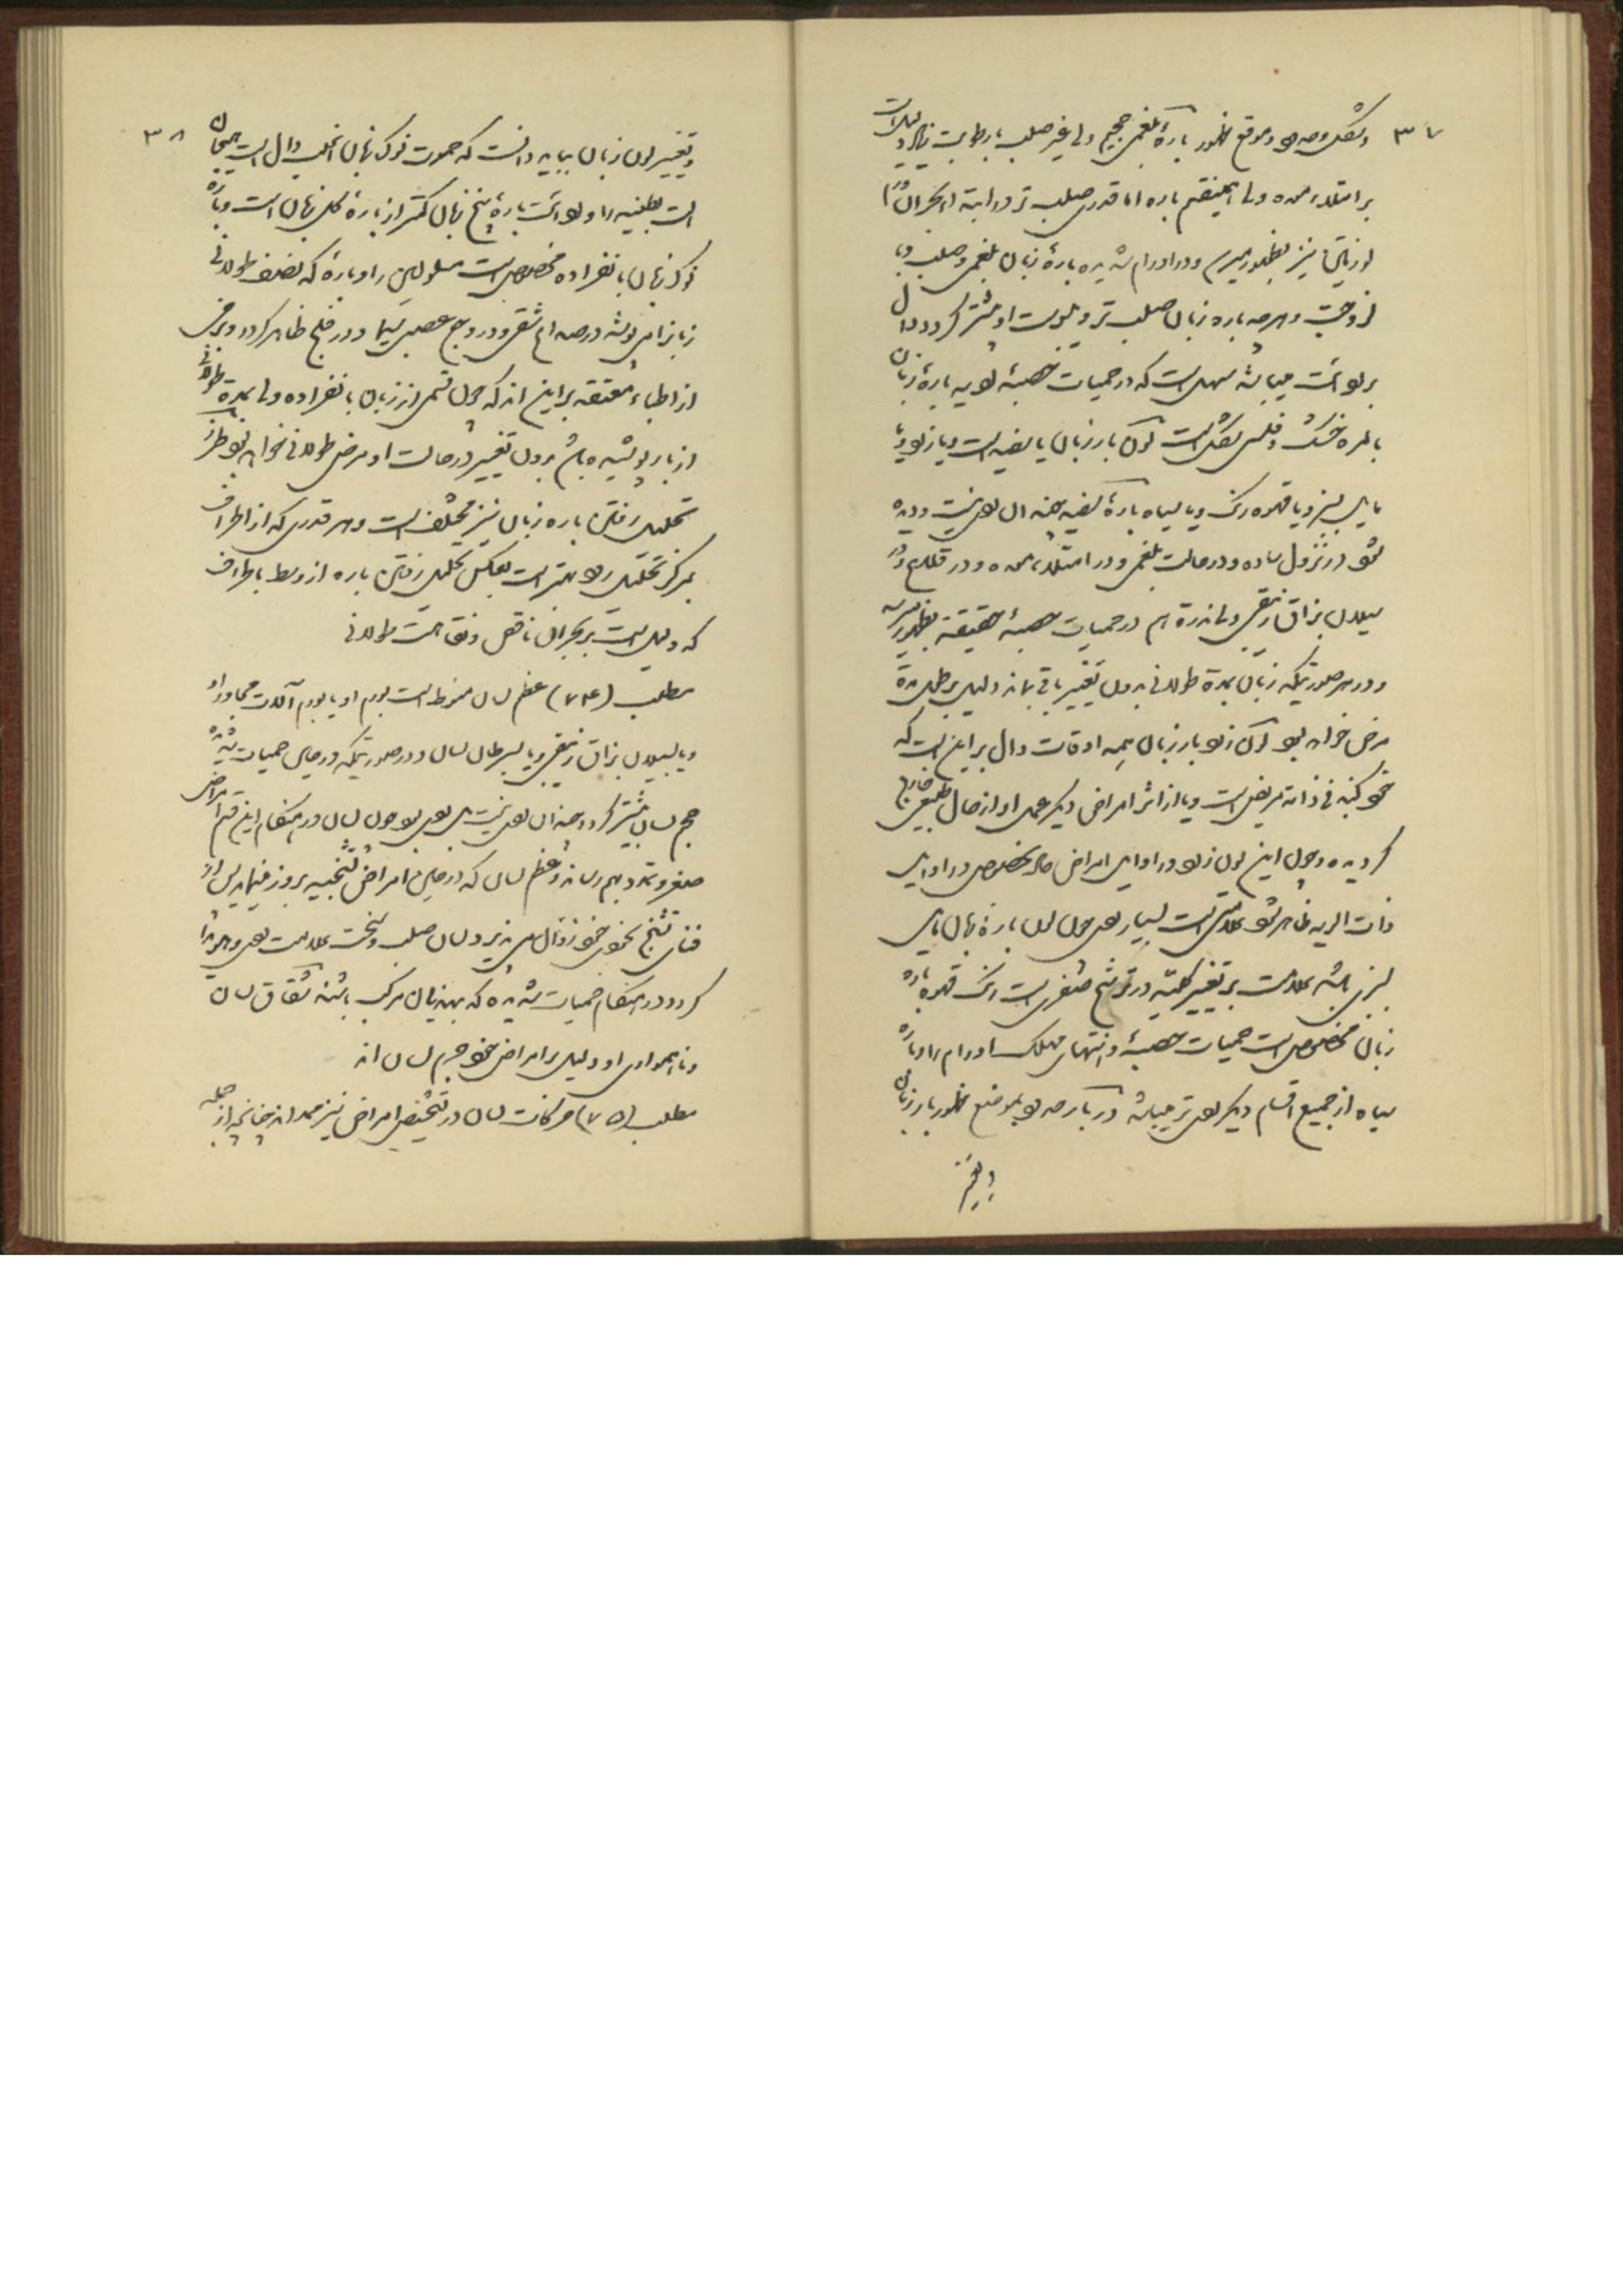 ۳۷
و موقع ظهور بارهٔ بلغمی حجیم ولی غیر صلب با رطوبت زیاد دلیل است
بر امتلاء معده ولی باره اما قدری صلب تر در ابتداء بحران
نیز بظهور میرسد و در اورام شدیده بارهٔ زبان بلغمی و صلب و با
لزوجت و هر چه باره زبان صلب تر و یبوست او بیشتر گردد دال
بر میباشد است که در حمیات حصبهٔ بارهٔ زبان
بالمره خشک و است لون بار زبان یا سفید است و یا زرد و یا
مایل بسبز و یا قهوه رنگ و یا سیاه بارهٔ سفید چندان بد نیست و دیده
شود در نزول ساده و در حالت بلغمی و در امتلاء معده و در قلاع و در
سیلان بزاق زیبقی و ندرة هم در حمیات حصبهٔ حقیقیه بظهور میرسد
و در صورتیکه زبان بمدة طولانی بدون تغییر باقی بماند دلیل بر طول مدة
مرض خواهد بود لون زرد بار زبان همه اوقات دال بر این است که
خود کبد فی ذاته مریض است و یا از اثر امراض دیگر عمل او از حال طبیعی خارج
گردیده و چون این لون زرد در اوایل امراض حاد بخصوص در اوایل
ذات الریه ظاهر شود علامتی است بسیار بد و چون لون بارهٔ زبان مایل
بسبزی باشد علامت بر تغییر کلیّه در ترشح صفری است رنگ قهوه باره
زبان مخصوص است حمیات حصبهٔ و انتهای مهلک اورام را و باره
سیاه از جمیع اقسام دیگر بدتر میباشد در بار بموضع ظهور بار زبان
و تغییر
۳۸
و تغییر لون زبان بباید دانست که حموت نوک زبان اغلب دال است
است را و بارهٔ بیخ زبان کمتر از بارهٔ کل زبان است و باره
نوک زبان بانفراده مخصوص است مسلولین را و بارهٔ که نصف طولانی
زبان را می پوشد در صداع شقی و در وجع عصبی سیما و در فلج ظاهر گردد و برخی
از اطباء معتقد بر این اند که چون قسمی از زبان بانفراده ولی بمدة طولانی
از بار پوشیده باشد بدون تغییر در حالت او مرض طولانی خواهد بود طرز
تحلیل رفتن باره زبان نیز مختلف است و هر قدری که از اطراف
بمرکز تحلیل رود بهتر است بعکس تحلیل رفتن باره از وسط باطراف
که دلیل است بر بحران ناقص و نقاهت طولانی
مطلب (۷۴) عظم لسان منوط است بورم او یا بورم آلات مجاور او
و یا بسیلان بزاق زیبقی و یا بسرطان لسان و در صورتیکه در حین حمیات شدیده
حجم لسان بیشتر گردد چندان بد نیست بلی بد بود چون لسان در هنگام این قسم امراض
صغر و تمدد بهم رساند و عظم لسان که در حین امراض تشنجیه بروز مینماید پس از
فنای تشنج بخودی خود زوال می پذیرد لسان صلب و سخت علامت بد و هویدا
گردد در هنگام حمیات شدیده که بهذیان مرکب باشند شقاق لسان
و ناهمواری او دلیل بر امراض خود جرم لسان اند
مطلب (۷۵) حرکات لسان در تشخیص امراض نیز ممد اند چنانچه از جمله